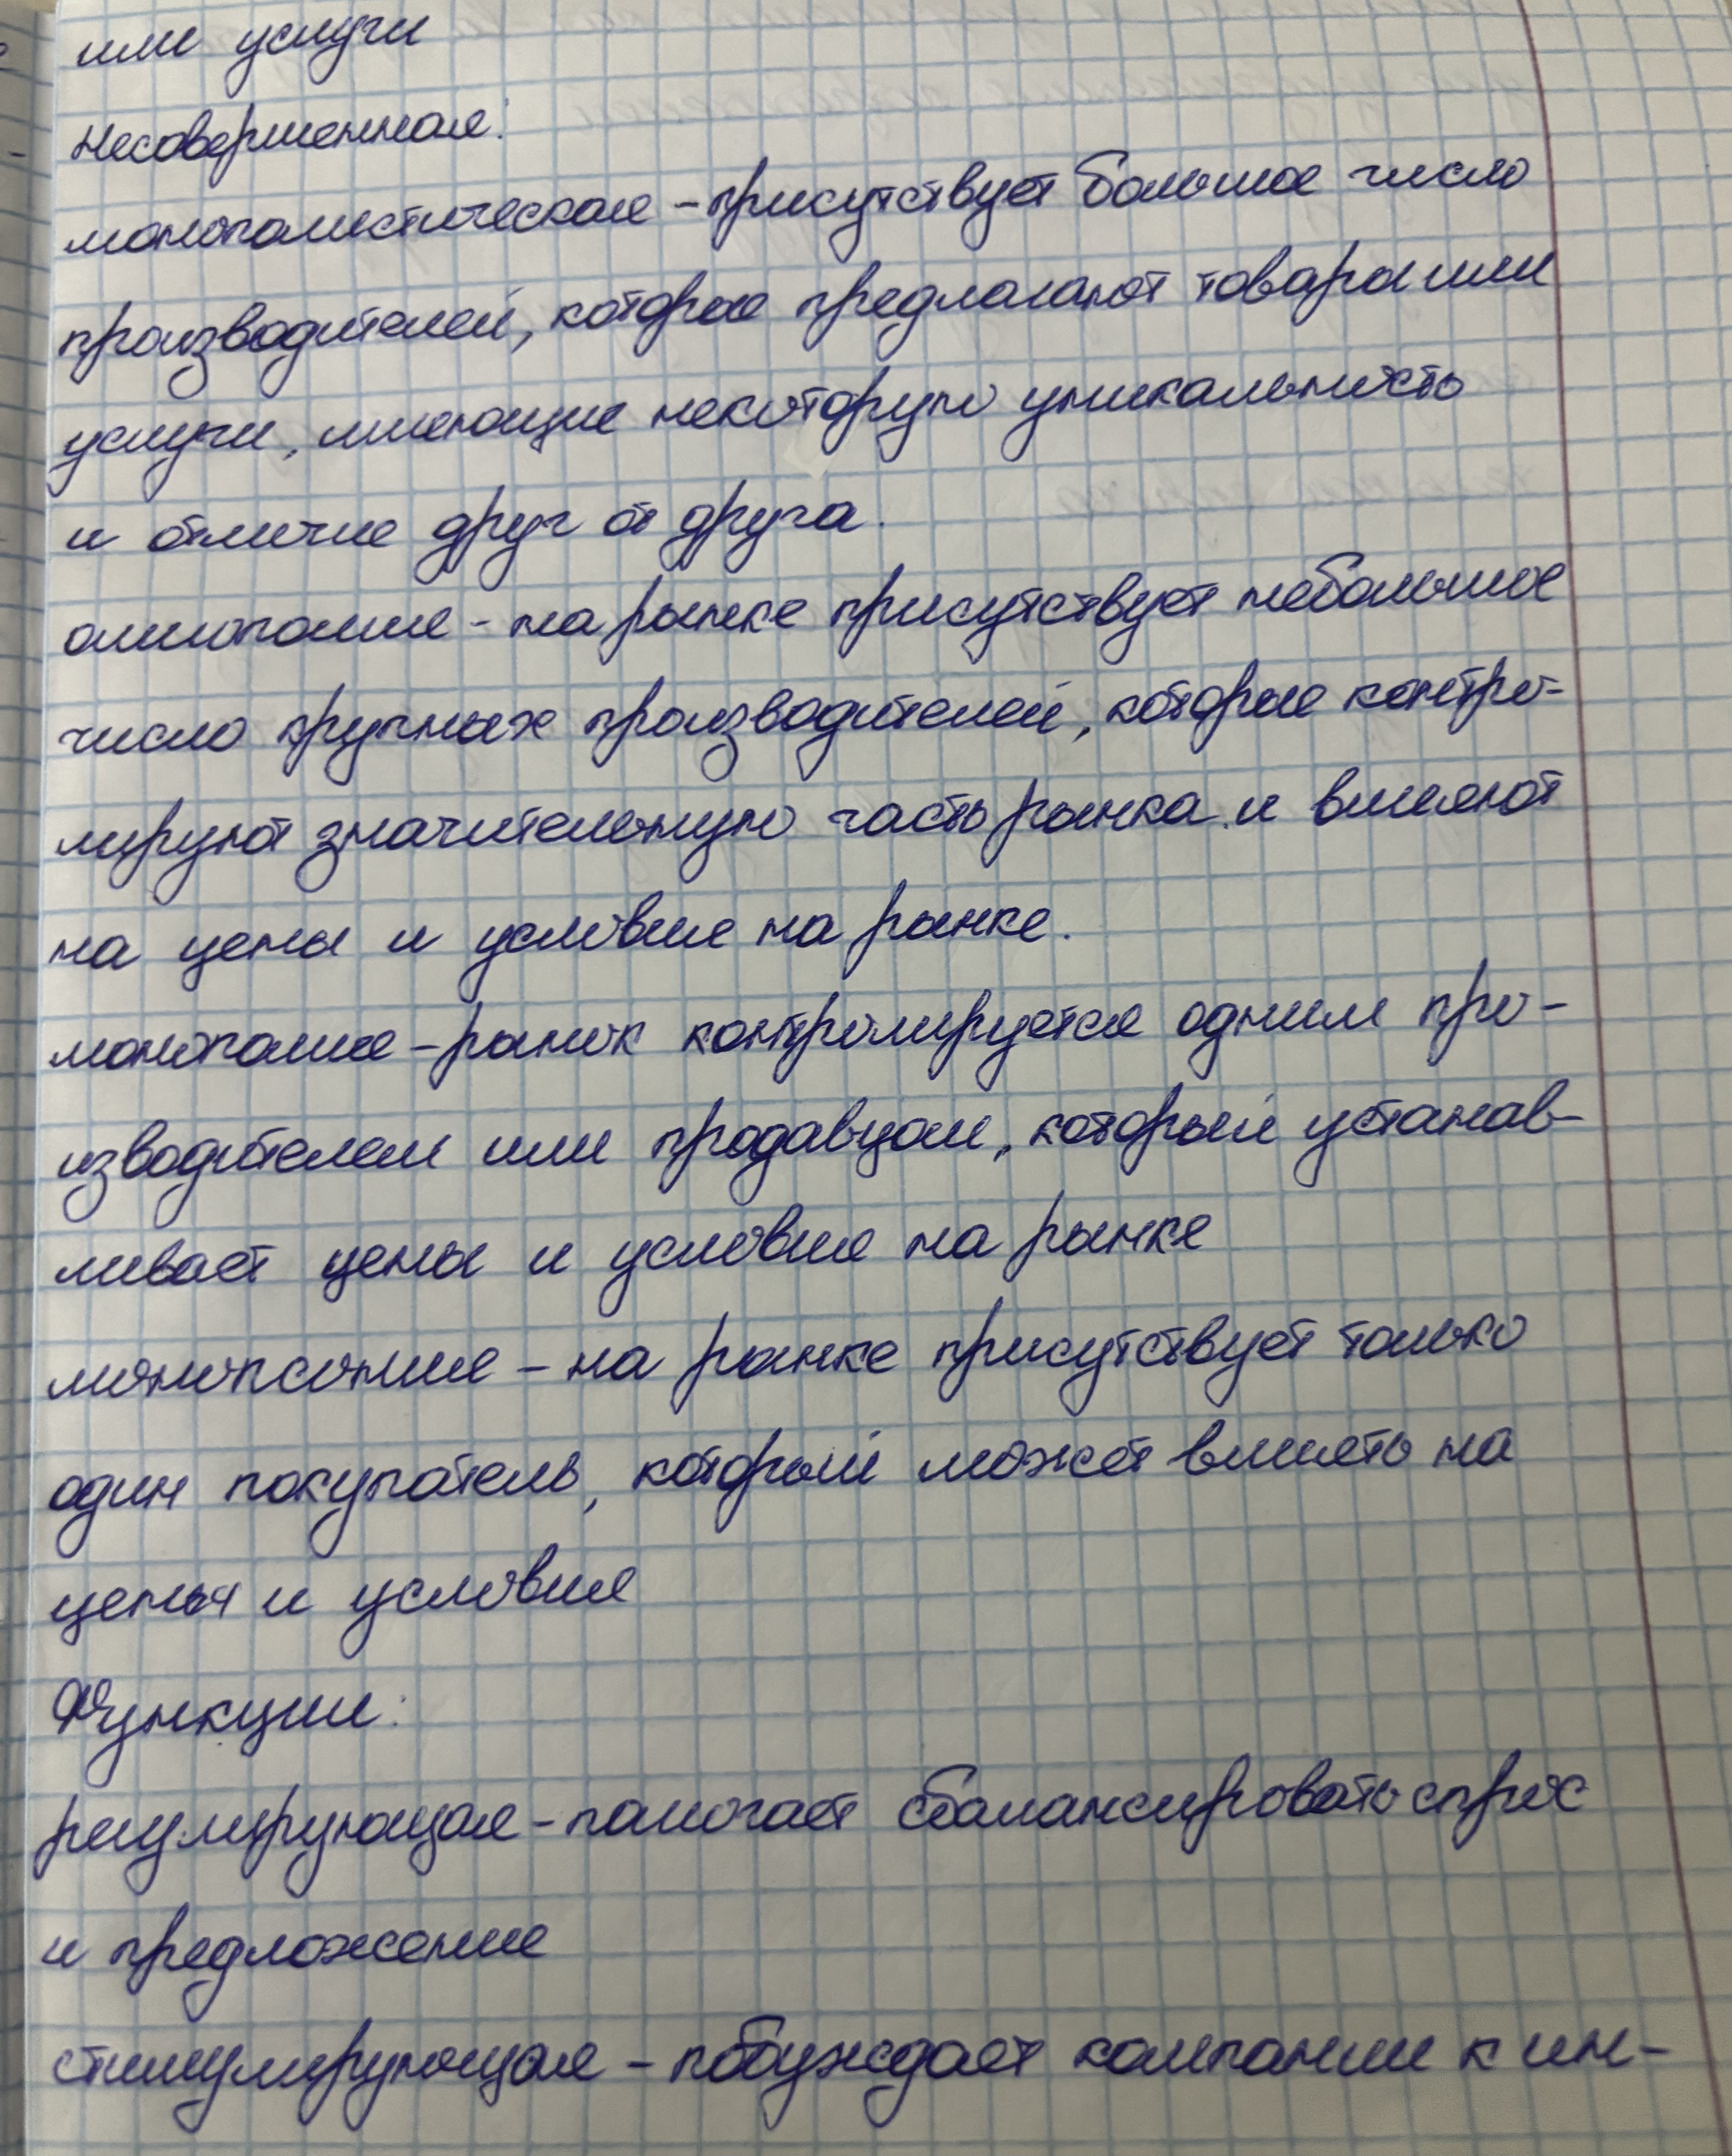 или услуги
несовершенная:
монополистическая - присутствует большое число
производителей, которые предлагают товары или
услуги, имеющие некоторую уникальность
и отличие друг от друга.
олигополия - на рынке присутствует небольшое
число крупных производителей, которые контро-
лируют значительную часть рынка и влияют
на цены и условия на рынке.
монополия - рынок контролируется одним про-
изводителем или продавцом, который устанав-
ливает цены и условия на рынке
монопсония - на рынке присутствует только
один покупатель, который может влиять на
цены и условия
Функции:
регулирующая - помогает сбалансировать спрос
и предложение
стимулирующая - побуждает компании к ин-